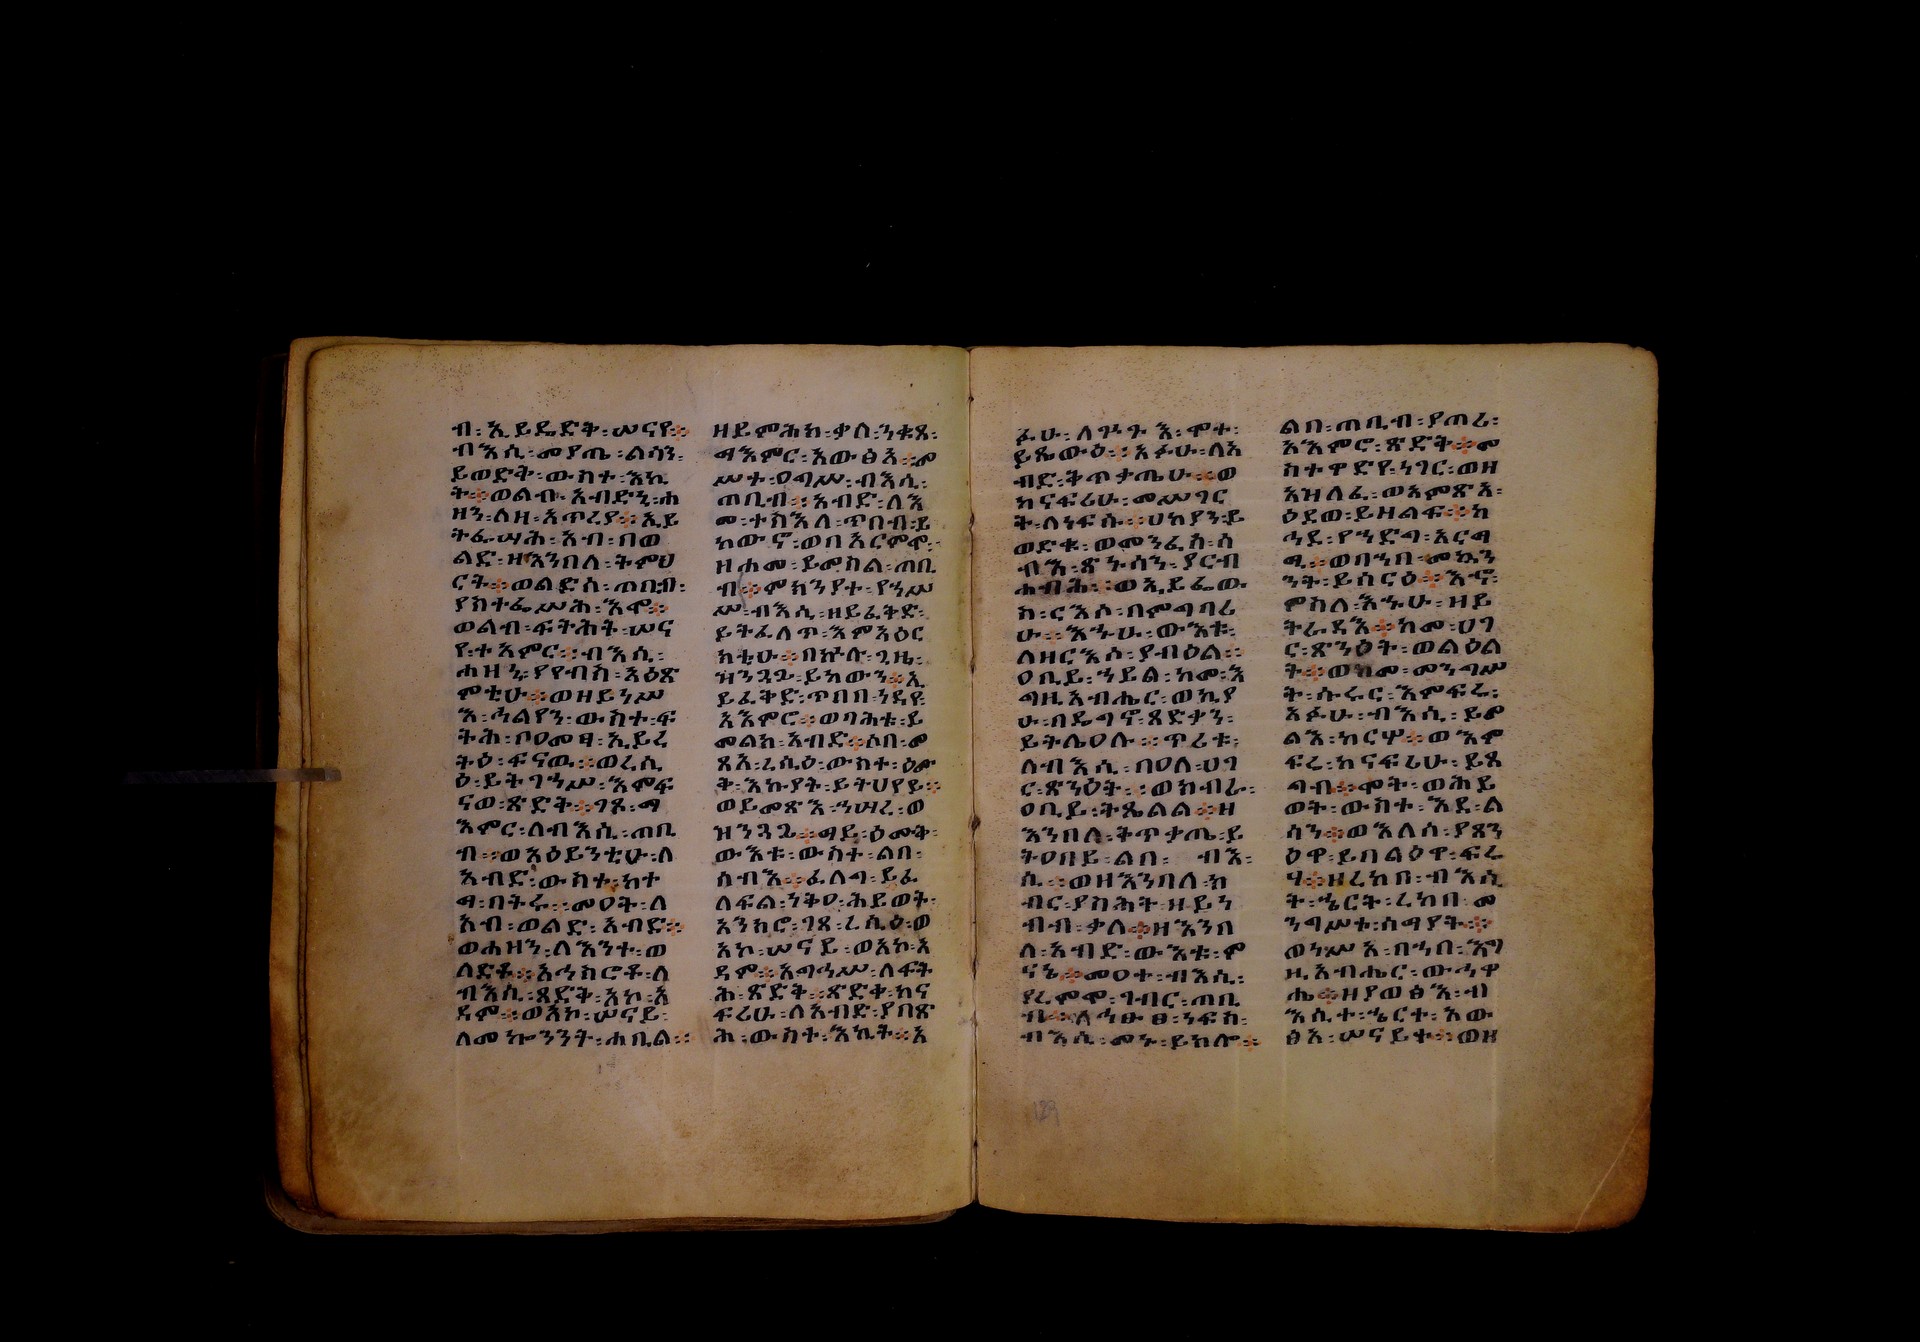 ብ፡ኢይዴድቅ፡ሠናየ፨
ብእሲ፡መያጤ፡ልሳን፡
ይወድቅ፡ውስተ፡እኪ
ት፨ወልብ፡አብድኒ፡ሐ
ዘን፡ለዘ፡አጥረያ፨ኢይ
ትፌሣሕ፡አብ፡በወ
ልድ፡ዘእንበለ፡ትምህ
ርት፨ወልድሰ፡ጠቢብ፡
ያስተፌሥሕ፡እሞ፨
ወልብ፡ፍትሕት፡ሠና
የ፡ተአምር፨ብእሲ፡
ሐዘን፡የየብስ፡አዕጽ
ምቲሁ፨ወዘይነሥ
እ፡ሕልየን፡ውስተ፡ፍ
ትሕ፡በዐመፃ፡ኢይረ
ትዕ፡ፍናዉ፨ወረሲ
ዕ፡ይትገኀሥ፡እምፍ
ናወ፡ጽድቅ፨ገጹ፡ማ
እምር፡ለብእሲ፡ጠቢ
ብ፨ወአዕይንቲሁ፡ለ
አብድ፡ውስተ፡ከተ
ማ፡በትሩ፨መዐት፡ለ
አብ፡ወልድ፡አብድ፨
ወሐዘን፡ለእንተ፡ወ
ለድቶ፨አኅስሮቶ፡ለ
ብእሲ፡ጻድቅ፡አኮ፡አ
ዳም፨ወአኮ፡ሠናይ፡
ለመኰንንት፡ሐቢል፨
ዘይምሕክ፡ቃለ፡ንቁጸ፡
ማእምር፡እውፅአ፨መ
ሥተ፡ዐግሥ፡ብእሲ፡
ጠቢብ፨አብድ፡ለእ
መ፡ተስእለ፡ጥበብ፡ይ
ከውኖ፡ወበአርምሞ፡
ዘሐመ፡ይመስል፡ጠቢ
ብ፨ምክንያተ፡የኀሥ
ሥ፡ብእሲ፡ዘይፈቅድ፡
ይትፈለጥ፡እምአዕር
ክቲሁ፨በኵሉ፡ጊዜ፡
ዝንጓጔ፡ይከውን፨ኢ
ይፈቅድ፡ጥበበ፡ነዳየ፡
አእምሮ፨ወባሕቱ፡ይ
መልክ፡አብድ፨ሶበ፡መ
ጽአ፡ረሲዕ፡ውስተ፡ዕም
ቅ፡እኩያት፡ይትሀየይ፨
ወይመጽእ፡ኀሣረ፡ወ
ዝንጓጔ፨ማይ፡ዕሙቅ፡
ውእቱ፡ውስተ፡ልበ፡
ሰብእ፨ፈለግ፡ይፈ
ለፍል፡ነቅዐ፡ሕይወት፡
አንክሮ፡ገጸ፡ረሲዕ፡ወ
አኮ፡ሠናይ፡ወአኮ፡አ
ዳም፨አግኅሦ፡ለፍት
ሕ፡ጽድቅ፨ጽድቀ፡ከና
ፍሪሁ፡ለአብድ፡ያበጽ
ሕ፡ውስተ፡እኪት፨አ
ፈሁ፡ለጕጉእ፡ሞተ፡
ይጼውዕ፨አፉሁ፡ለአ
ብድ፡ቅጥቃጤሁ፨ወ
ከናፍሪሁ፡መሥገር
ት፡ለነፍሱ፨ሀካያን፡ይ
ወድቁ፡ወመንፈስ፡ሰ
ብእ፡ጽኑሳን፡ያርብ
ሐብሕ፨ወኢይፌው
ስ፡ርእሶ፡በምግባሪ
ሁ፨እኅሁ፡ውእቱ፡
ለዘርእሶ፡ያብዕል፨
ዐቢይ፡ኀይል፡ስመ፡እ
ግዚአብሔር፡ወኪያ
ሁ፡በዴግኖ፡ጻድቃን፡
ይትሌዐሉ፨ጥሪቱ፡
ለብእሲ፡በዐለ፡ሀገ
ር፡ጽንዕት፨ወክብራ፡
ዐቢይ፡ትጼልል፨ዘ
እንበለ፡ቅጥቃጤ፡ይ
ትዐበይ፡ልበ፡ብእ፡
ሲ፨ወዘእንበለ፡ክ
ብር፡ያስሕት፡ዘይነ
ብብ፡ቃለ፨ዘእንበ
ለ፡አብድ፡ውእቱ፡ም
ናኔ፨መዐተ፡ብእሲ፡
የረምሞ፡ገብር፡ጠቢ
ብ፨ለኅፁፀ፡ነፍስ፡
ብእሲ፡መኑ፡ይክሎ፨
ልበ፡ጠቢብ፡ያጠሪ፡
አእምሮ፡ጽድቅ፨መ
ስተዋድየ፡ነገር፡ወዘ
አዝለፈ፡ወእምጽአ፡
ዕደወ፡ይዘልፍ፨ከ
ሓደ፡የኀድግ፡አርማ
ሚ፨ወበኀበ፡መኳን
ንት፡ይሰርዕ፨እኖ፡
ምስለ፡እኁሁ፡ዘይ
ትራዳእ፨ከመ፡ሀገ
ር፡ጽንዕት፡ወልዕል
ት፨ወከመ፡መንግሥ
ት፡ሱሩር፡እምፍሬ፡
አፉሁ፡ብእሲ፡ይመ
ልእ፡ከርሦ፨ወእም
ፍሬ፡ከናፍሪሁ፡ይጸ
ግብ፨ሞት፡ወሕይ
ወት፡ውስተ፡እደ፡ል
ሳን፨ወእለሰ፡ያጸን
ዕዋ፡ይበልዕዋ፡ፍሬ
ሃ፨ዘረከበ፡ብእሲ
ት፡ኄርት፡ረከበ፡መ
ንግሥተ፡ሰማያት፨
ወነሥአ፡በኀበ፡እግ
ዚአብሔር፡ውኅዋ
ሔ፨ዘያወፅእ፡ብ
እሲተ፡ኄርተ፡አው
ፅአ፡ሠናይተ፨ወዘ
129